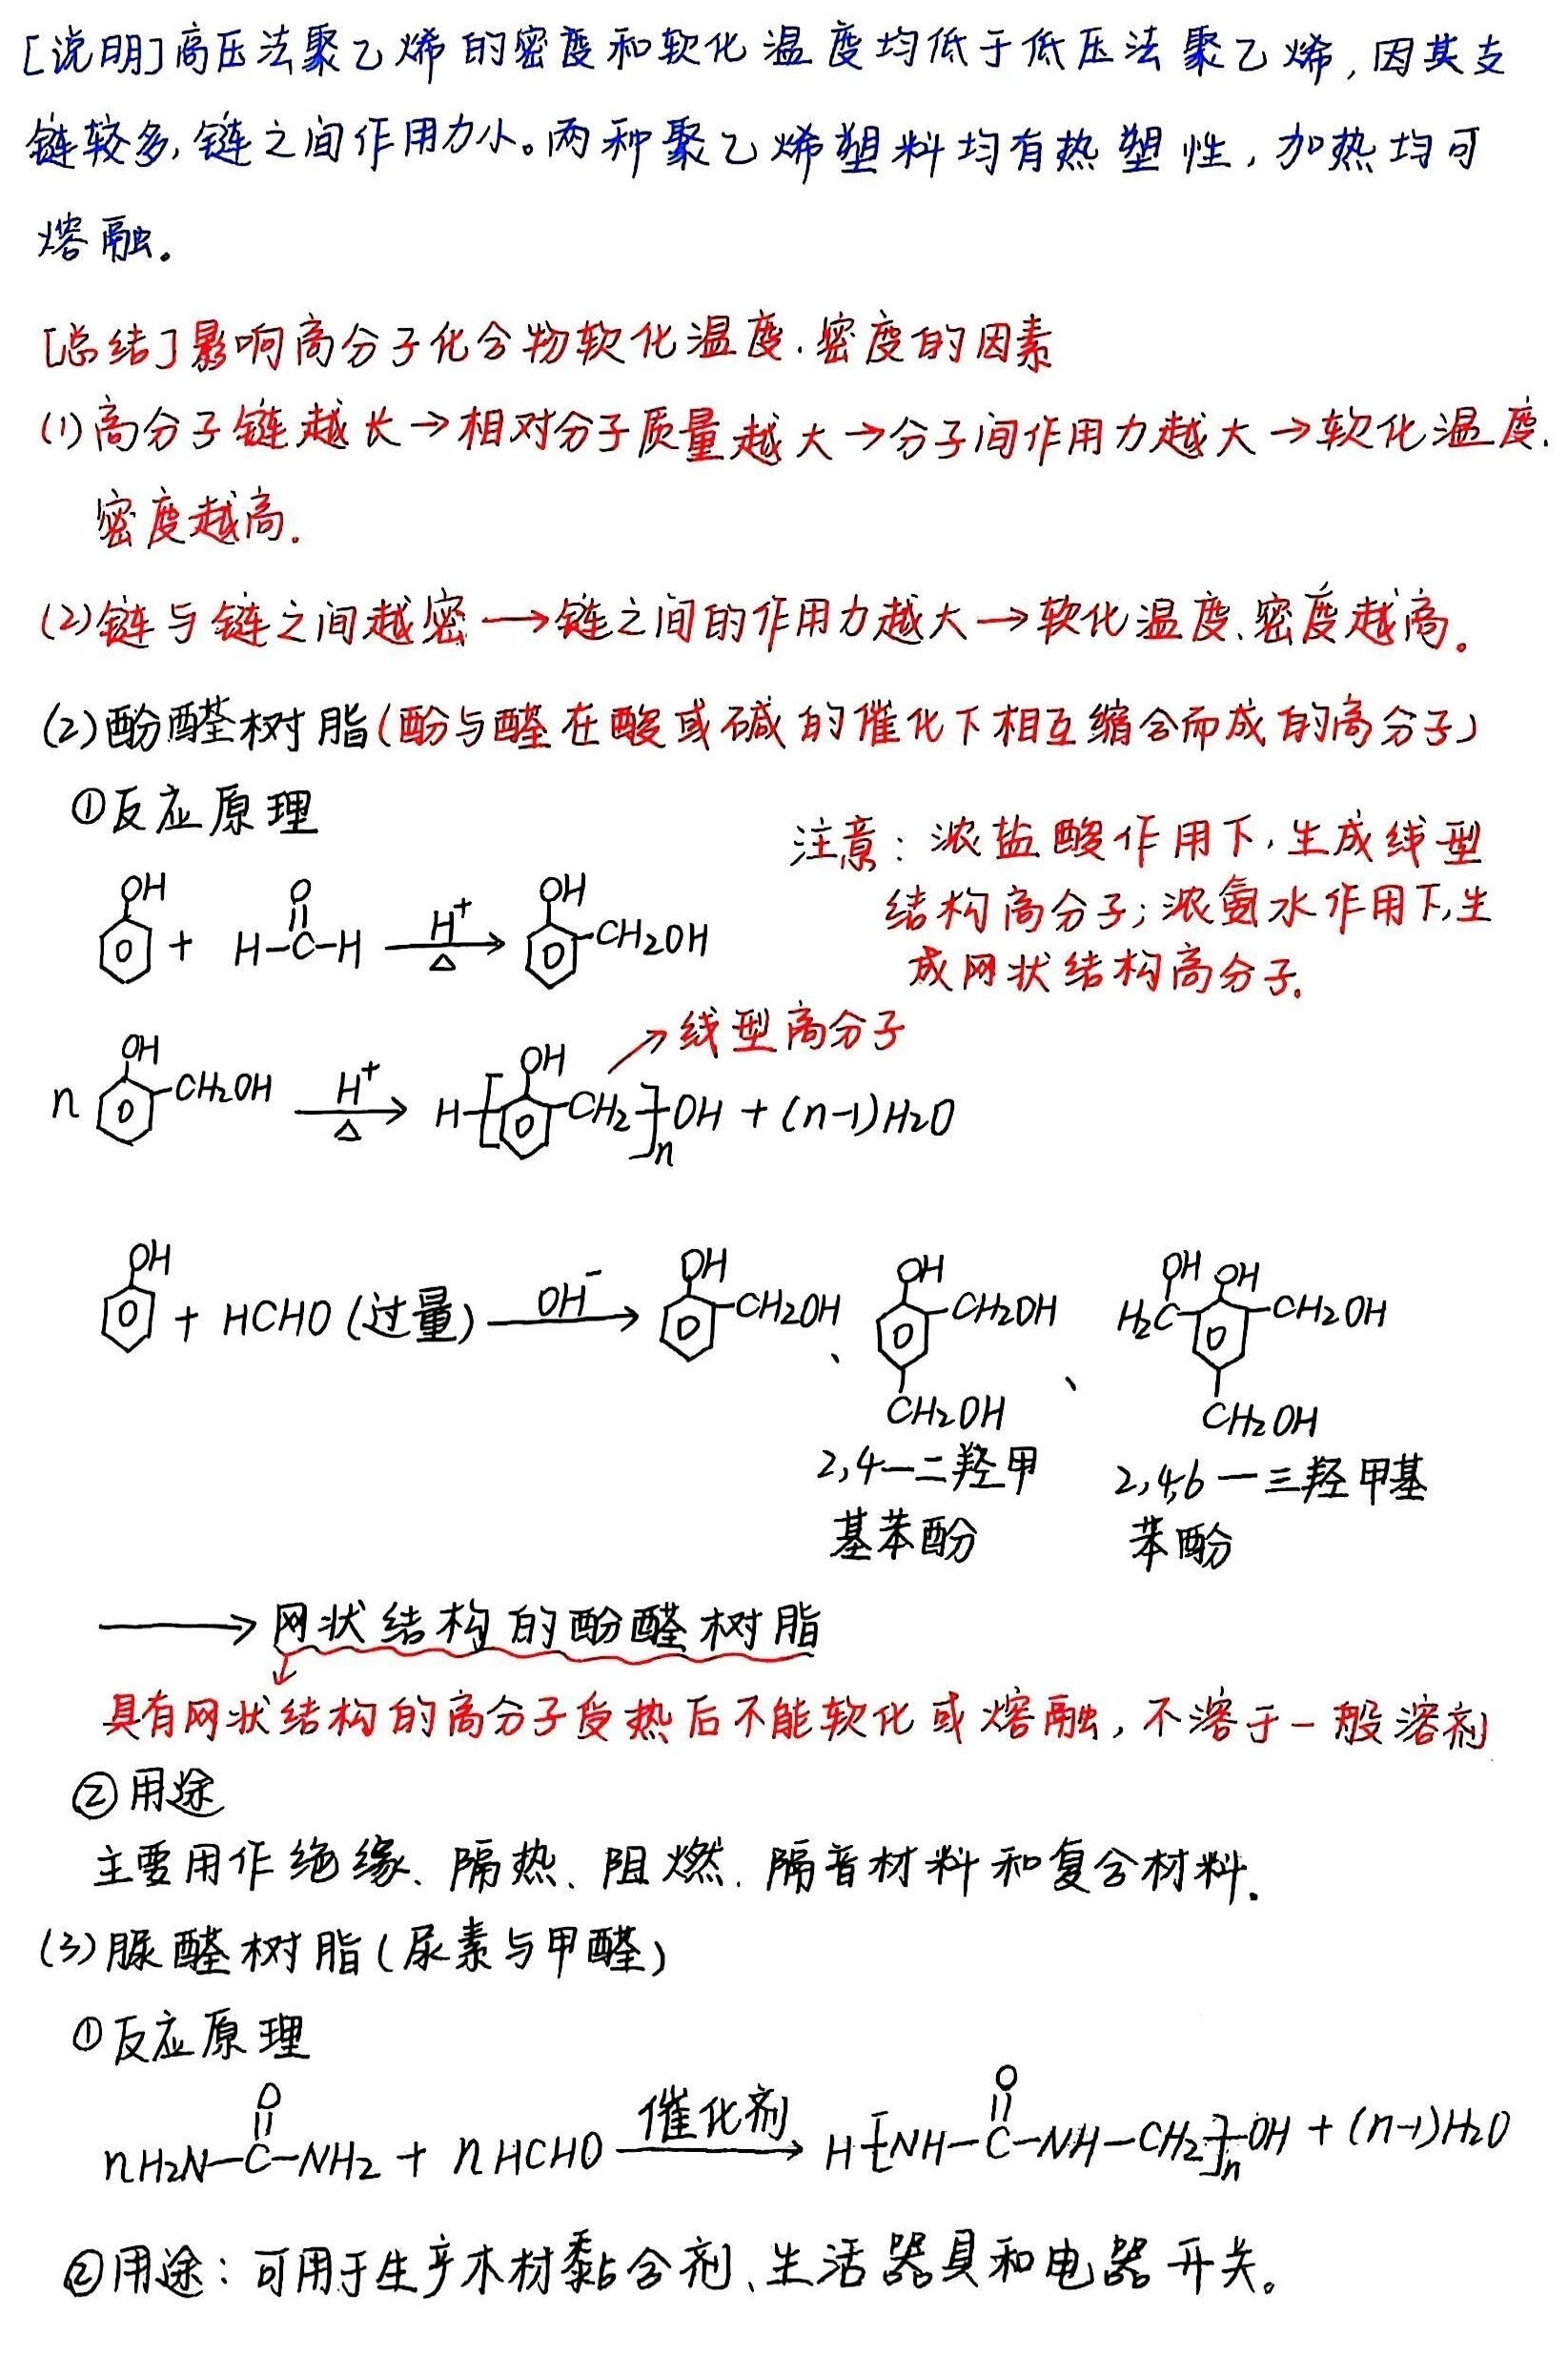 [说明]高压法聚乙烯的密度和软化温度均低于低压法聚乙烯,因其支
链较多,链之间作用力小。两种聚乙烯塑料均有热塑性,加热均可
熔融。
[总结]影响高分子化合物软化温度.密度的因素
(1)高分子链越长→相对分子质量越大→分子间作用力越大→软化温度.
密度越高.
(2)链与链之间越密→链之间的作用力越大→软化温度、密度越高。
(2)酚醛树脂(酚与醛在酸或碱的催化下相互缩合而成的高分子)
①反应原理
注意:浓盐酸作用下,生成线型
结构高分子;浓氨水作用下,生
成网状结构高分子.
OH O OH
+ H-C-H H⁺ △ → CH₂OH
→线型高分子
OH OH
n CH₂OH H⁺ △ → H[ CH₂]nOH + (n-1)H₂O
OH OH OH OH OH
+ HCHO (过量) OH⁻ → CH₂OH、 CH₂OH、 H₂C CH₂OH
CH₂OH CH₂OH
2,4一二羟甲
基苯酚
2,4,6一三羟甲基
苯酚
→网状结构的酚醛树脂
具有网状结构的高分子受热后不能软化或熔融,不溶于一般溶剂
②用途
主要用作绝缘、隔热、阻燃.隔音材料和复合材料.
(3)脲醛树脂(尿素与甲醛)
①反应原理
O 催化剂 O
nH₂N-C-NH₂ + nHCHO → H[NH-C-NH-CH₂]nOH + (n-1)H₂O
②用途:可用于生产木材黏合剂、生活器具和电器开关。